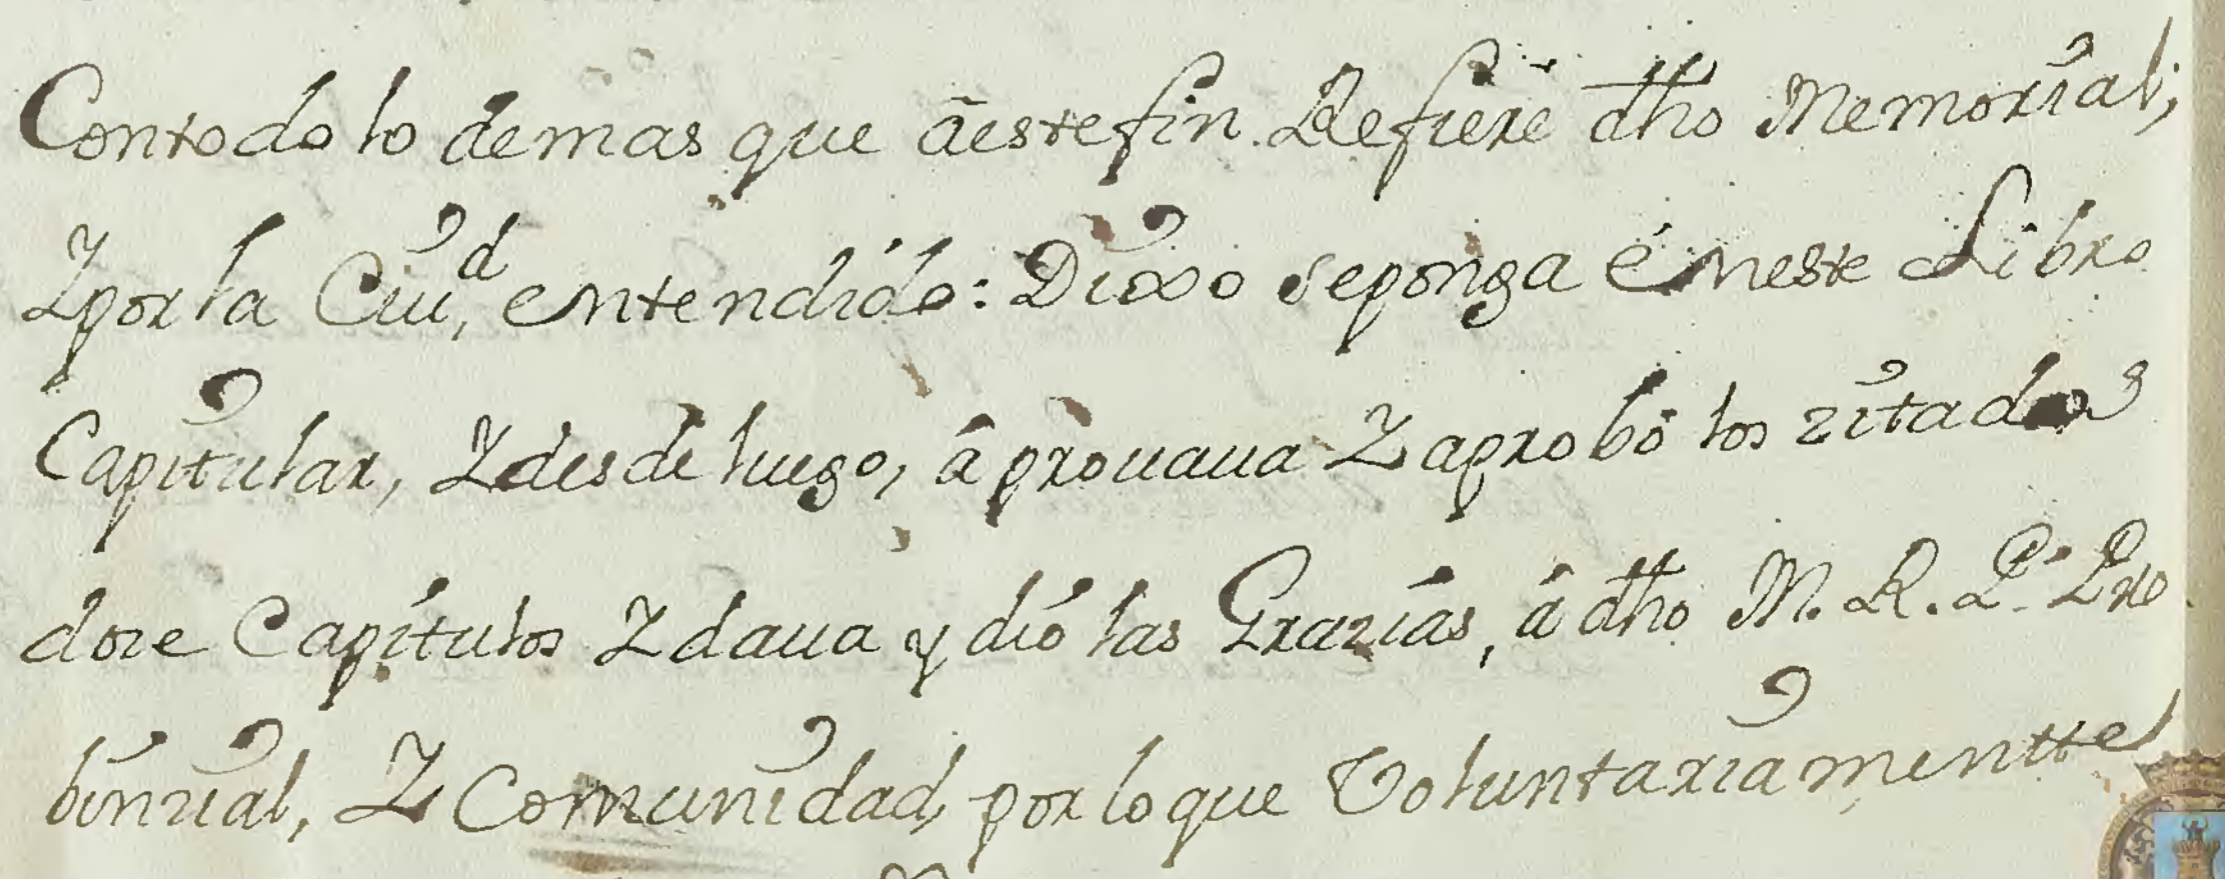 Contodo lo demas que aestefin Refiere dho Memorial;
Y por la Ciud, entendido: Dixo se ponga en este Libro
Capitular, Y desde luego, aprouaua Y aprobó los zitados
doze Capitulos Y daua y dió las Grazias, á dho M. R. P. Pro
binzial, Y Comunidad, por lo que Voluntariamentte